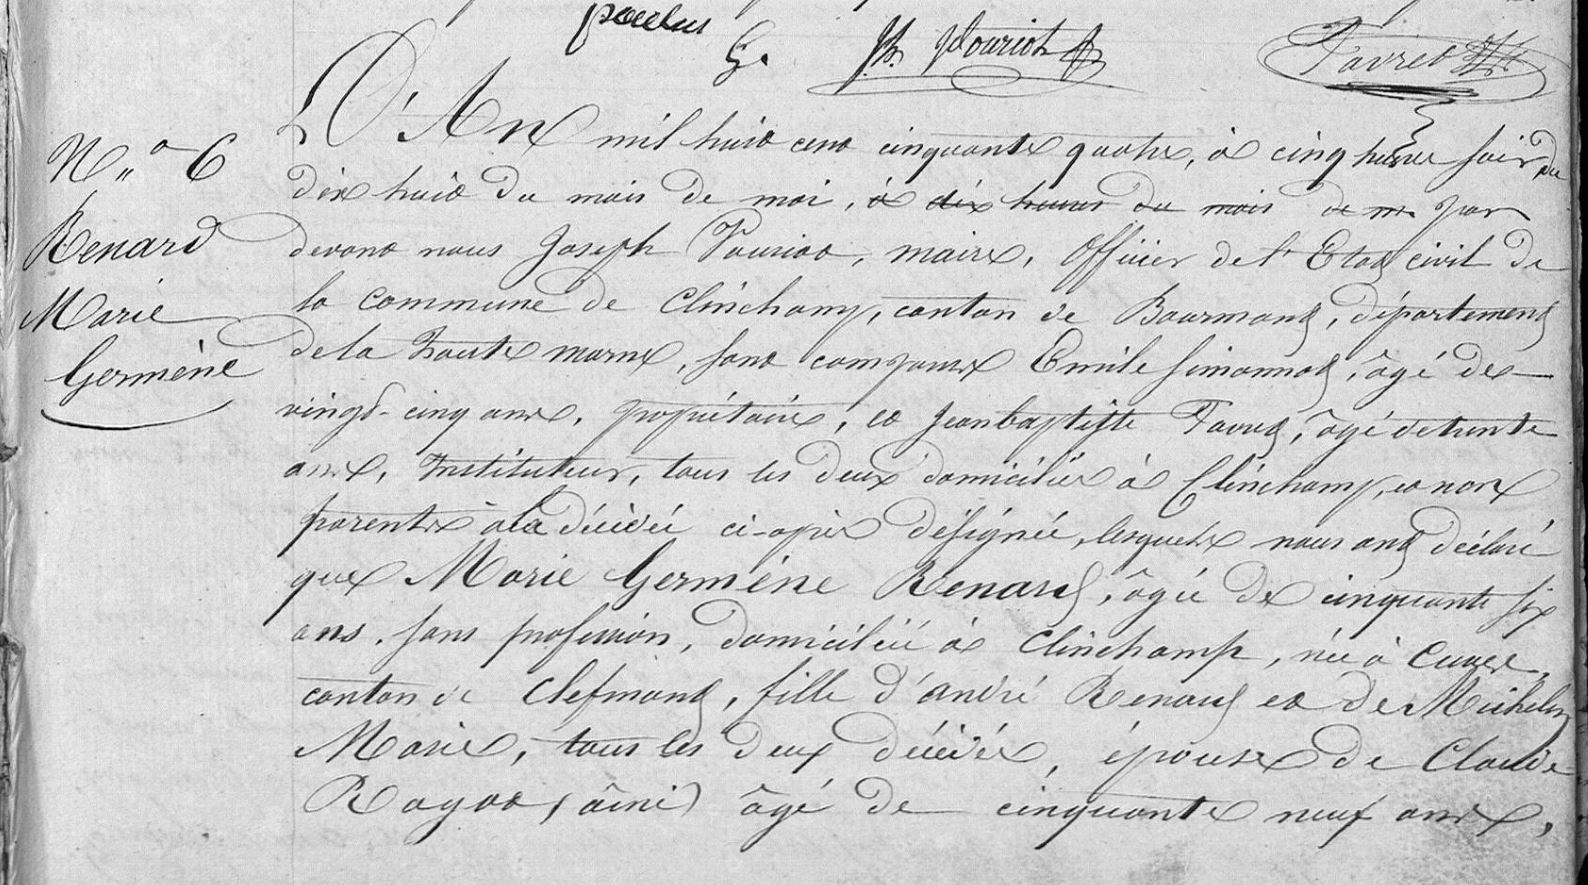 Pouriot
Favret
N° 6
Renard
Marie
Germène
L'An mil huit cent cinquante quatre, à cinq heures soir, du
dix huit du mois de mai, à dix heures du mois de m. par
devant nous Joseph Pouriot, maire, Officier de l'Etat civil de
la commune de Clinchamp, canton de Bourmont, département
de la haute marne, sont comparus Emile Simonnot, âgé de
vingt-cinq ans, propriétaire, et Jean baptiste Favret, âgé de trente
ans, Instituteur, tous les deux domiciliés à Clinchamp, et non
parents à la décédée ci-après désignée, lesquels nous ont déclaré
que Marie Germène Renard, âgée de cinquante six
ans, sans profession, domiciliée à Clinchamp, née à Cuves,
canton de Clefmont, fille d'andré Renard et de Michelin
Marie, tous les deux décédés, épouse de Claude
Ragot (aîné) âgé de cinquante neuf ans,